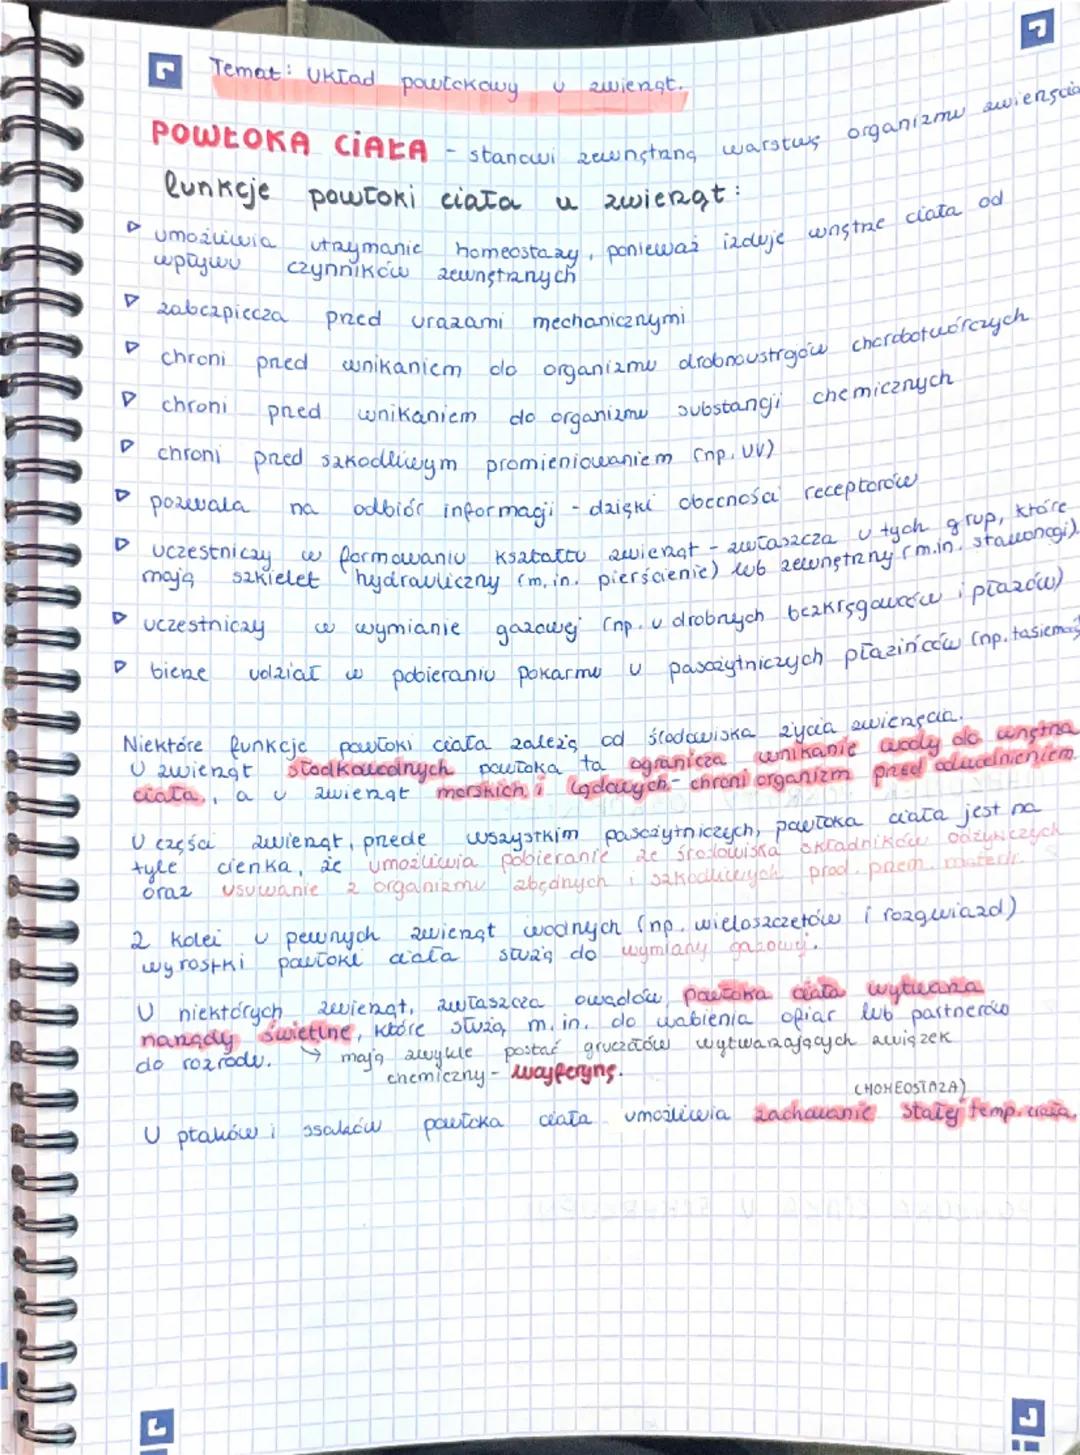 Temat: Układ powłokowy u zwierząt.
POWŁOKA CiAŁA - stanowi zewnętrzną warstwę organizmu zwierzęcia
funkcje powłoki ciała u zwierząt:
▷ umożliwia utrzymanie homeostazy, ponieważ izoluje wnętrze ciała od
wpływu czynników zewnętrznych
▷ zabezpiecza przed urazami mechanicznymi
▷ chroni przed wnikaniem do organizmu drobnoustrojów chorobotwórczych
▷ chroni przed wnikaniem do organizmu substancji chemicznych
▷ chroni przed szkodliwym promieniowaniem (np. UV)
▷ pozwala na odbiór informacji - dzięki obecności receptorów
▷ uczestniczy w formowaniu kształtu zwierząt - zwłaszcza u tych grup, które
mają szkielet hydrauliczny (m.in. pierścienie) lub zewnętrzny (m.in. stawonogi).
▷ uczestniczy w wymianie gazowej (np. u drobnych bezkręgowców i płazów)
▷ bierze udział w pobieraniu pokarmu u pasożytniczych płazińców (np. tasiemce
Niektóre funkcje powłoki ciała zależą od środowiska życia zwierzęcia.
U zwierząt słodkowodnych powłoka ta ogranicza wnikanie wody do wnętrza
ciała, a u zwierząt morskich i lądowych - chroni organizm przed odwodnieniem.
U części zwierząt, przede wszystkim pasożytniczych, powłoka ciała jest na
tyle cienka, że umożliwia pobieranie ze środowiska składników odżywczych
oraz usuwanie z organizmu zbędnych i szkodliwych prod. przem. materii.
Z kolei u pewnych zwierząt wodnych (np. wieloszczetów i rozgwiazd)
wyrostki powłoki ciała służą do wymiany gazowej.
U niektórych zwierząt, zwłaszcza owadów, powłoka ciała wytwarza
narządy świetlne, które służą m.in. do wabienia ofiar lub partnerów
do rozrodu. → mają zwykle postać gruczołów wytwarzających związek
chemiczny - lucyferynę.
(HOMEOSTAZA)
U ptaków i ssaków powłoka ciała umożliwia zachowanie stałej temp. ciała.